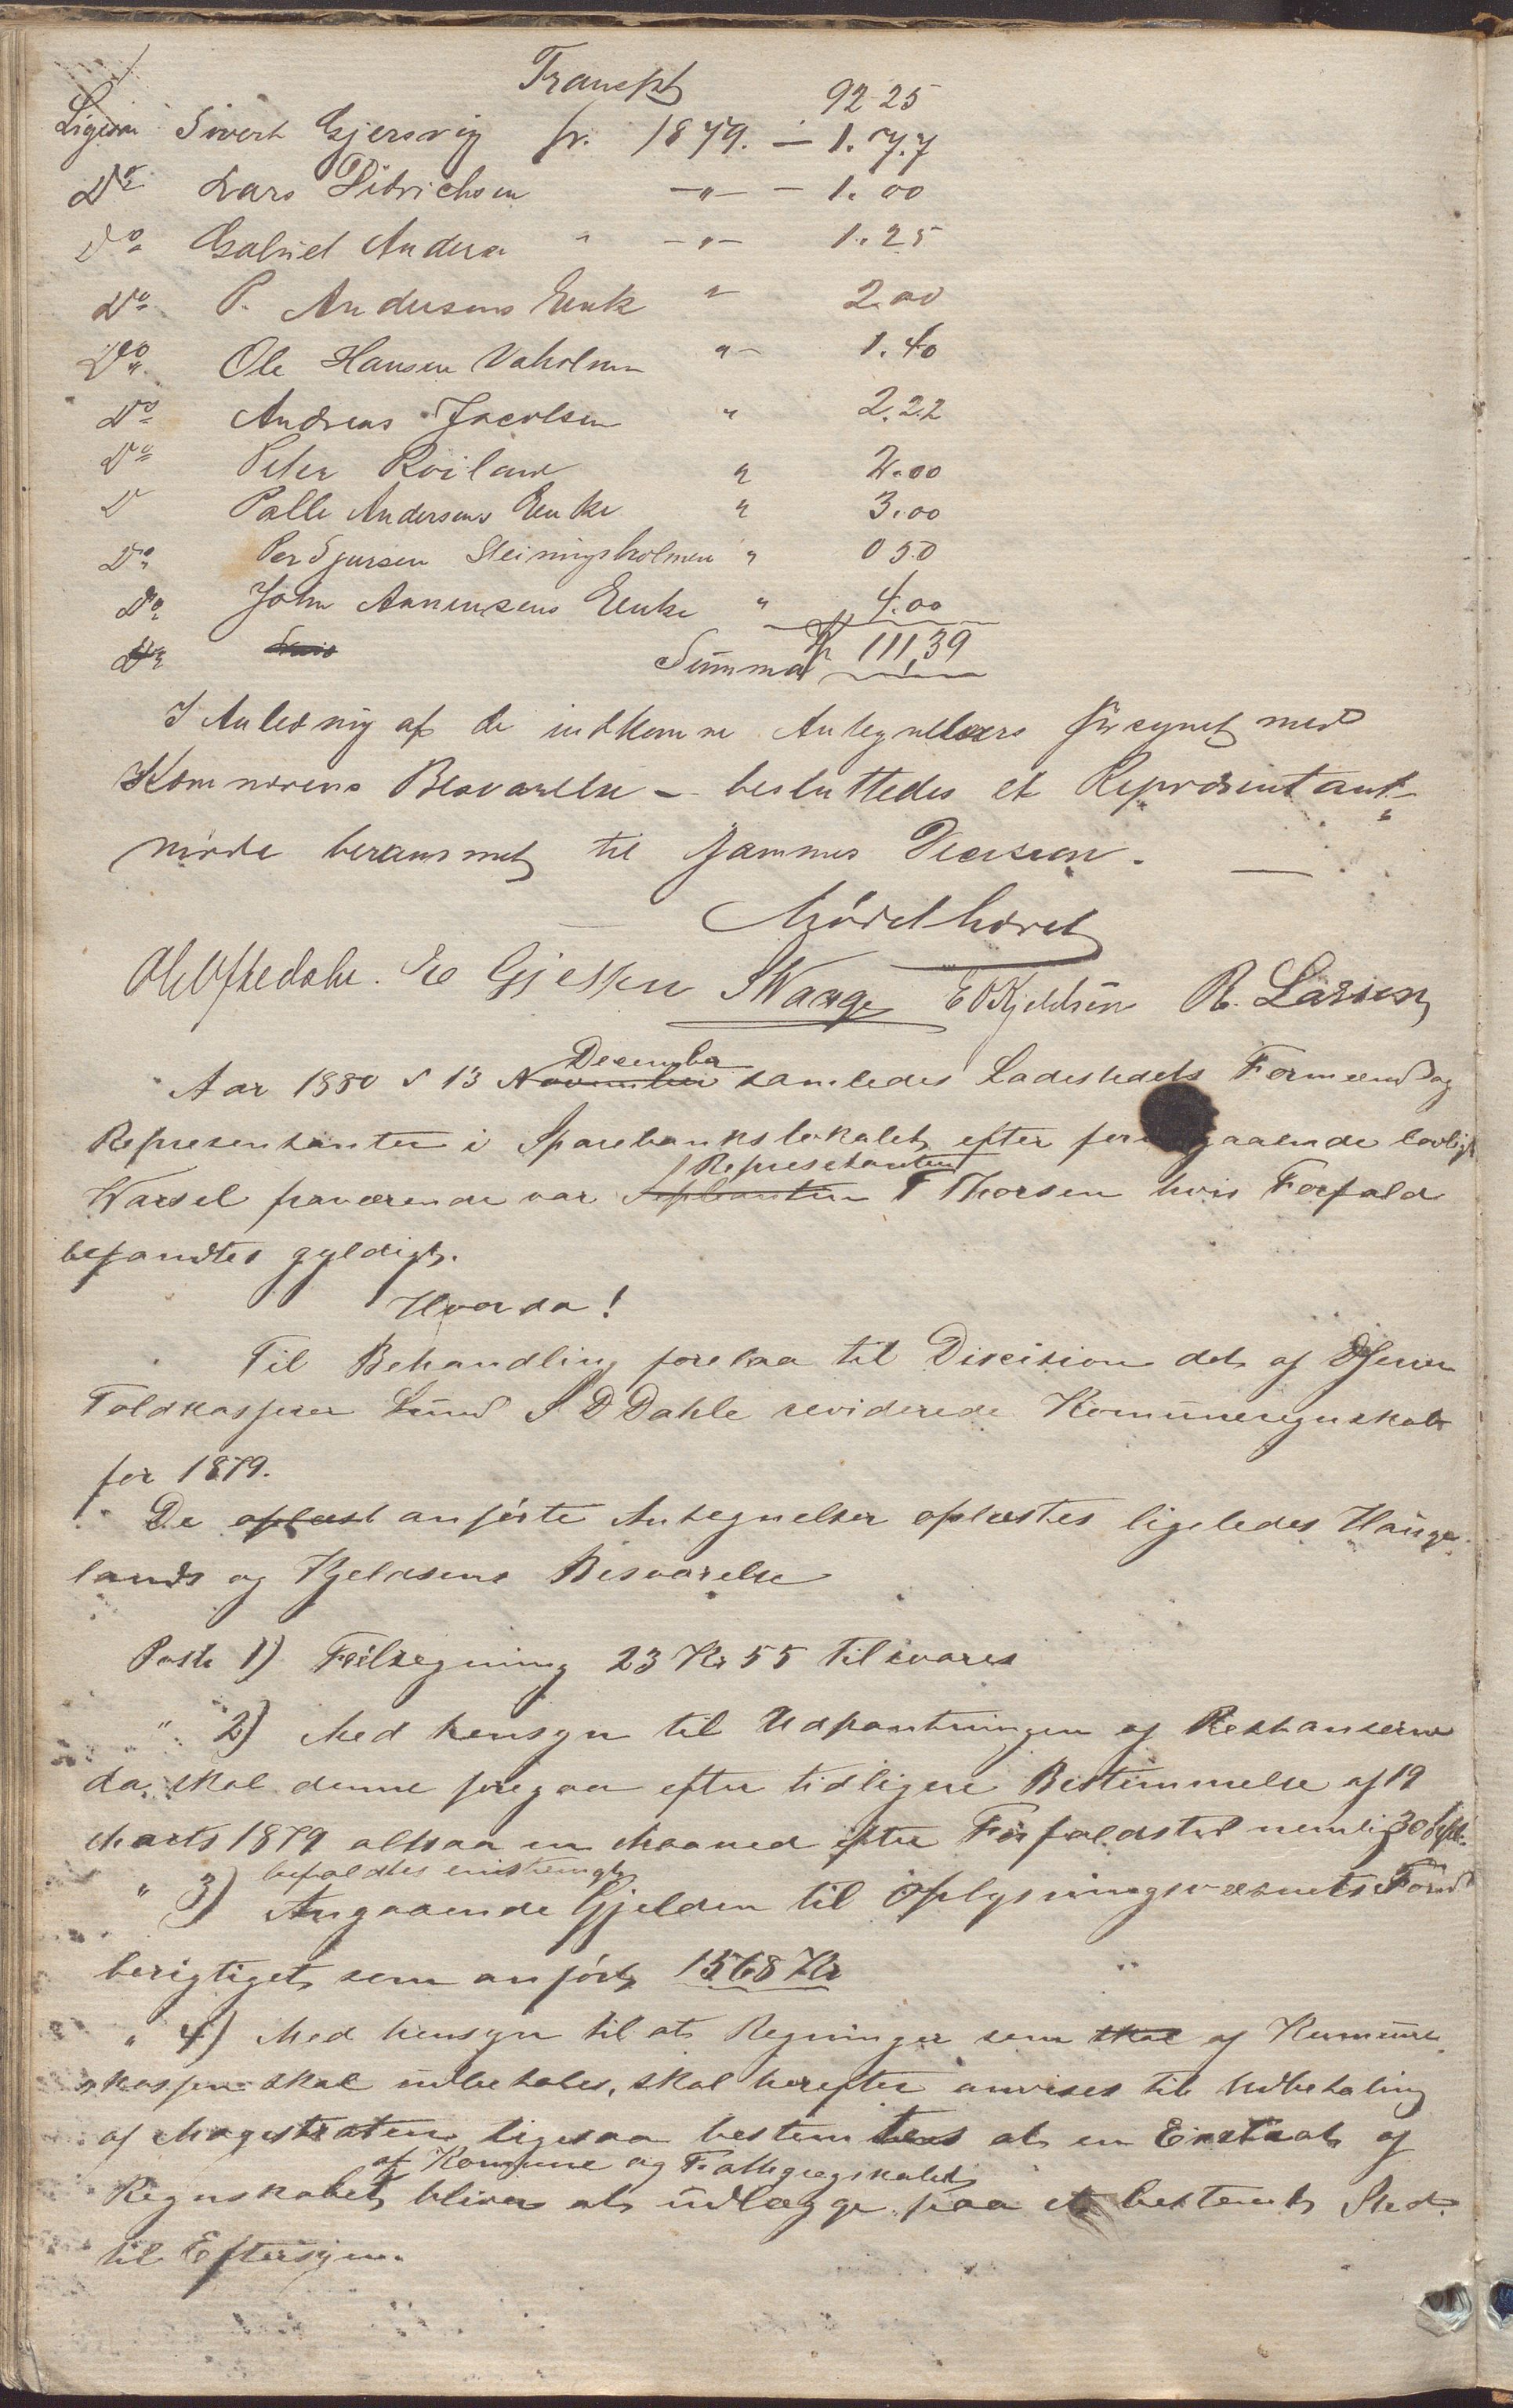 Transpt 92 25
Ligesaa Sivert Gjersvig fr. 1879. — 1.77
Do Lars Didrichsen —"— - 1.00
Do Gabriel Anders " —"— 1.25
Do P. Andersens Enk " 2.00
Do Ole Hansen Vaholmen " 1.40
Do Andreas Jacobsen " 2.22
Do Peter Röiland " 2.00
D Palle Andersens Enke " 3.00
Do Per Sjursen Steiningsholmen " 0 50
Do John Annensens Enke " 4.00
Do Summa Kr 111,39
I Anledning af de indkomne Antegnelser forsynet med
Kæmnerens Besvarelse - besluttedes et Repræsentant-
møde berammet til Decision.
Mødet hævet
Ole Aftedahl. Gjessen S Waage E O Kjeldsen R. Larsen
Aar 1880 d 13 November December samledes Ladestedets Formænd og
Representanter i Sparebankslokalet efter foregaaende lovligt
Warsel fraværende var Representanten T Thorsen hvis Forfald
befandtes gyldigt.
Hvorda!
Til Behandling forelaa til Dicision det af DHerrer
Toldkasserer Lund S D Dahle reviderede Komüneregnskab
for 1879.
De oplæst anførte Antegnelser oplæstes ligeledes Hauge-
lands og Kjeldsens Besvarelse
Post 1) Feilregning 23 Kr 55 tilsvares
" 2) Med hensyn til Udpantningen af Restanserne
da skal denne foregaa efter tidligere Bestemmelse af 19
Marts 1879 altsaa en Maaned efter Forfaldstid nemlig 30 Sept.
befaldtes enstemigt
" 3) Angaaende Gjelden til Oplysningsvæsenets Fond
berigtiget som anført 1568 Kr
" 4) Med hensyn til at Regninger som skal af Kommune
kassen skal udbetales, skal herefter anvises til Udbetaling
af Magistraten ligesaa bestemtes at en Exstrat af
af Komune og Fattigregnskabet
Regnskabet bliver at üdlægge paa et bestemt Sted
til Eftersyn.